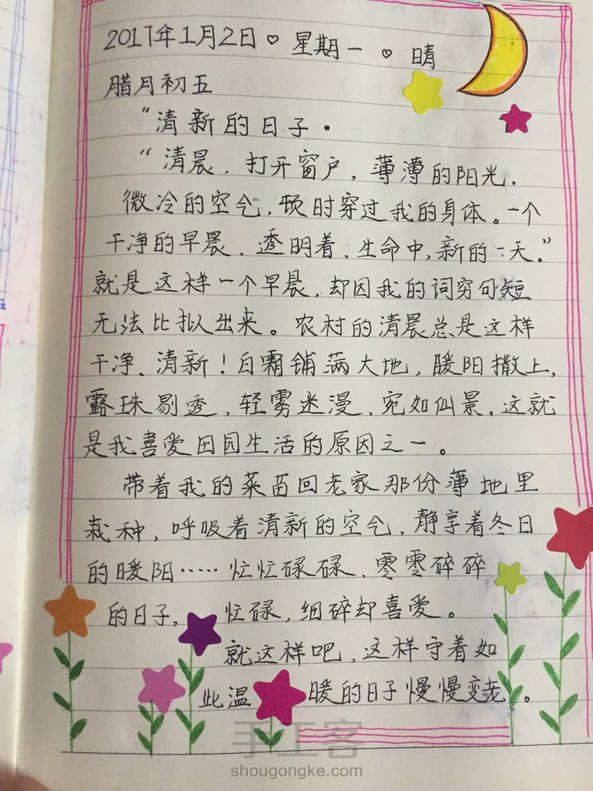 2017年1月2日♡星期一♡晴
腊月初五
“清新的日子.
“清晨,打开窗户,薄薄的阳光.
微冷的空气,顿时穿过我的身体。一个
干净的早晨,透明着,生命中,新的一天.”
就是这样一个早晨,却因我的词穷句短
无法比拟出来。农村的清晨总是这样
干净、清新!白霜铺满大地,暖阳撒上,
露珠剔透,轻雾迷漫,宛如仙景,这就
是我喜爱田园生活的原因之一。
带着我的菜苗回老家那份薄地里
栽种,呼吸着清新的空气,静享着冬日
的暖阳……忙忙碌碌,零零碎碎
的日子,忙碌,细碎却喜爱。
就这样吧,这样守着如
此温暖的日子慢慢变老。
手工客
shougongke.com